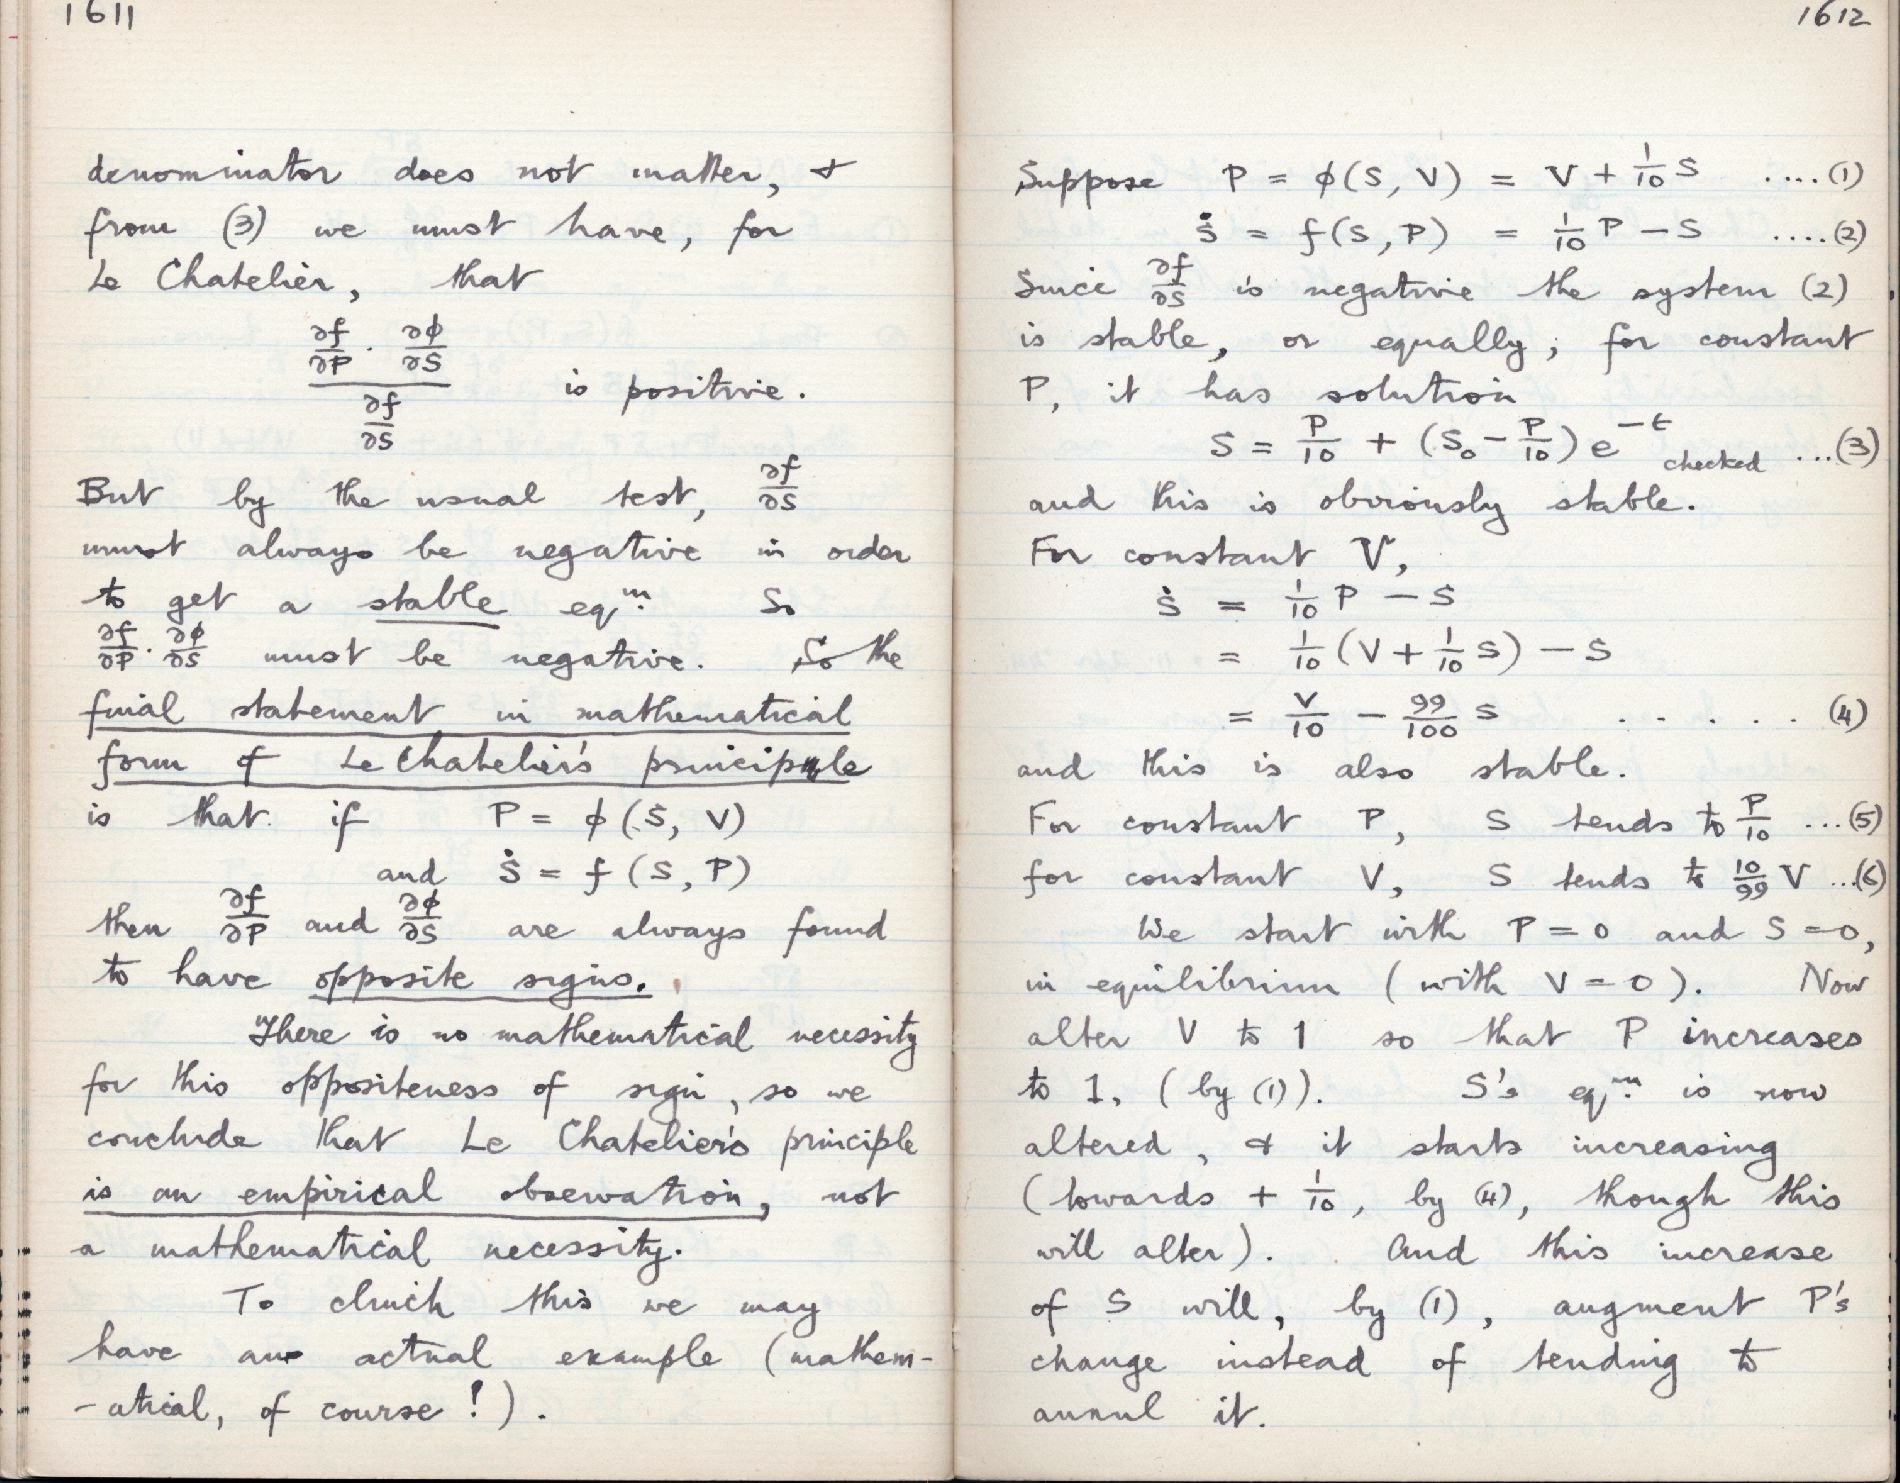 1611
denominator does not matter, &
from (3) we must have, for
Le Chatelier, that
∂f/∂P · ∂φ/∂S
/ ∂f/∂S is positive.
But by the usual test, ∂f/∂S
must always be negative in order
to get a stable eqm. So
∂f/∂P · ∂φ/∂S must be negative. So the
final statement in mathematical
form of Le Chatelier's principle
is that if P = φ(S, V)
and Ṡ = f(S, P)
then ∂f/∂P and ∂φ/∂S are always found
to have opposite signs.
There is no mathematical necessity
for this oppositeness of sign, so we
conclude that Le Chatelier's principle
is an empirical observation, not
a mathematical necessity.
To clinch this we may
have an actual example (mathem-
-atical, of course!).
1612
Suppose P = φ(S, V) = V + 1/10 S ....(1)
Ṡ = f(S, P) = 1/10 P - S ....(2)
Since ∂f/∂S is negative the system (2)
is stable, or equally, for constant
P, it has solution
S = P/10 + (S₀ - P/10) e^-t checked ...(3)
and this is obviously stable.
For constant V,
Ṡ = 1/10 P - S
= 1/10 (V + 1/10 S) - S
= V/10 - 99/100 S ...... (4)
and this is also stable.
For constant P, S tends to P/10 ...(5)
for constant V, S tends to 10/99 V ...(6)
We start with P = 0 and S = 0,
in equilibrium (with V = 0). Now
alter V to 1 so that P increases
to 1, (by (1)). S's eqm. is now
altered, & it starts increasing
(towards + 1/10, by (4), though this
will alter). And this increase
of S will, by (1), augment P's
change instead of tending to
annul it.